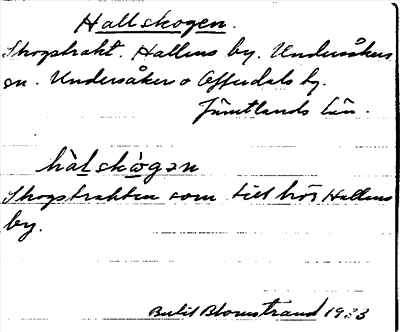 Hallskogen.
Skogstrakt. Hallens by. Undersåkers
sn. Undersåker o Offerdals tg.
Jämtlands län.
hàlskògən
Skogstrakten som till hör Hallens
by.
Bertil Blomstrand 1933